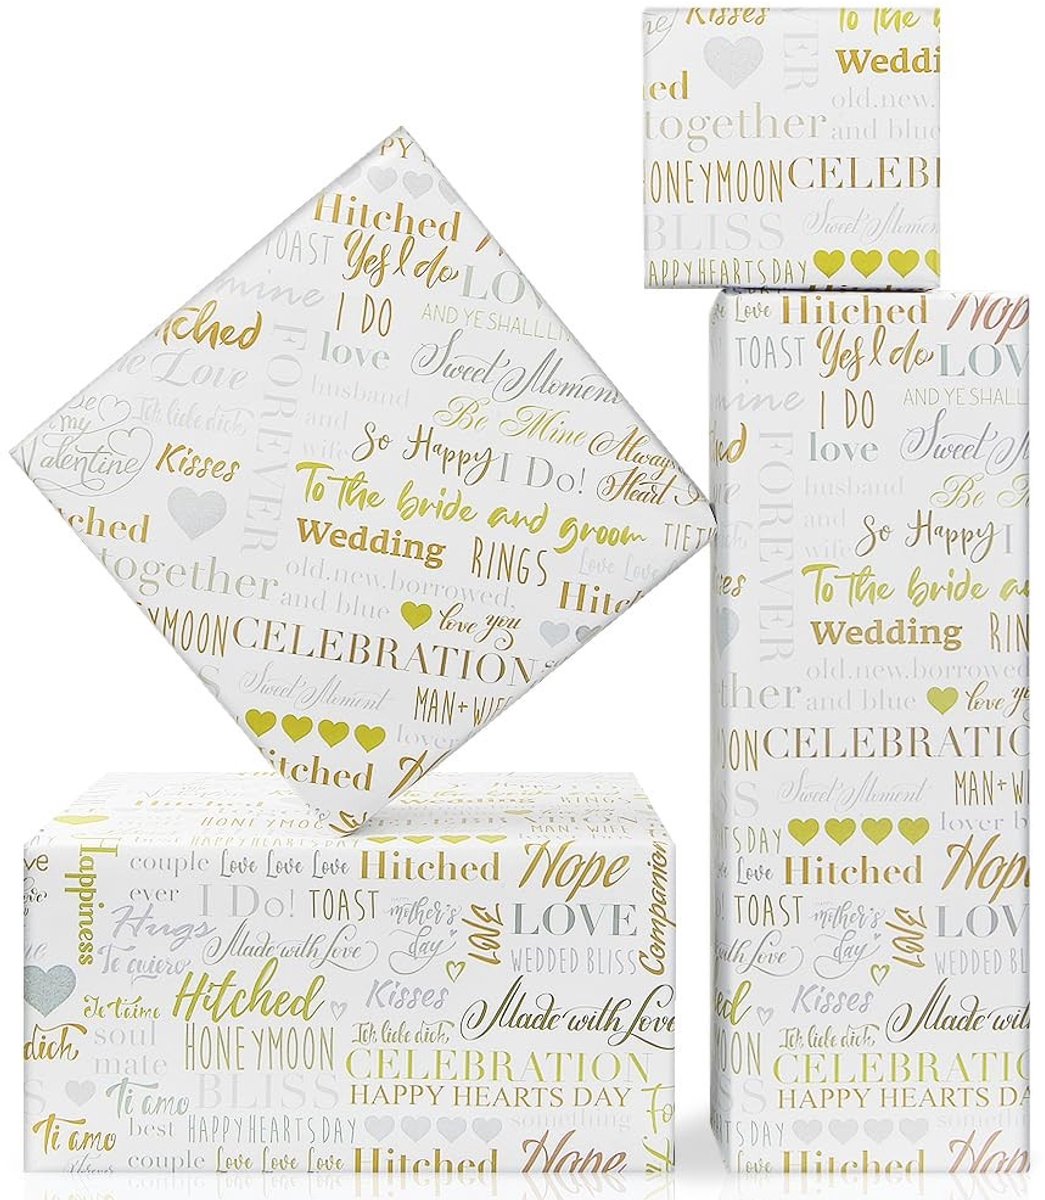 Kisses
To the b
Weddi
old.new.
together
and blue
ONEYMOON
CELEB
BLISS
Sweet Momen
APPYHEARTSDAY
Hitched
TOAST
Yes I do
LOV
mine
I DO
AND YE SHALL L
tched
love
Sweet Moment
e Love
FOREVER
husband
and
wife
Be Mine
Ich liebe dich
Be
my
Valentine
Kisses
So Happy
I Do!
Always
Heart
To the bride and groom
Wedding
RINGS
TIE T
Love Love
ched
together
old.new.borrowed,
and blue
love you
Hitc
MOON
CELEBRATION
Sweet Moment
MAN + WIFE
lover
itched
Love
Hitched
Nop
TOAST
Yes I do
LOV
mine
I DO
AND YE SHALL
love
Sweet M
FOREVER
husband
and
wife
Be
So Happy
I
To the bride a
Wedding
RIN
old.new.borrowed
ther
and blue
love yo
OON
CELEBRATIO
Sweet Moment
MAN + W
lover b
TSDAY
Love
Hitched
Nop
TOAST
mother's
day
LOVE
LOV
with Love
WEDDED BL
Kisses
Made wit
OON
Ich liebe dich
CELEBRATIO
HAPPY HEARTS DA
TSDAY
something
Love
Hitched
Nop
Hitched
Wedding
RINGS
HONEYMOO
MAN + WIFE
Happiness
couple
Love Love Love
Hitched
Nope
ever
I Do!
TOAST
mother's
day
LOVE
LOVE
Companion
Hugs
Made with Love
WEDDED BLISS
Te quiero
Je t'aime
Hitched
Kisses
Made with Love
dich
soul
mate
HONEYMOON
Ich liebe dich
CELEBRATION
Ti amo
BLISS
HAPPY HEARTS DAY
Ti amo
best
HAPPYHEARTSDAY
something
couple
Love Love Love
Hitched
Nope